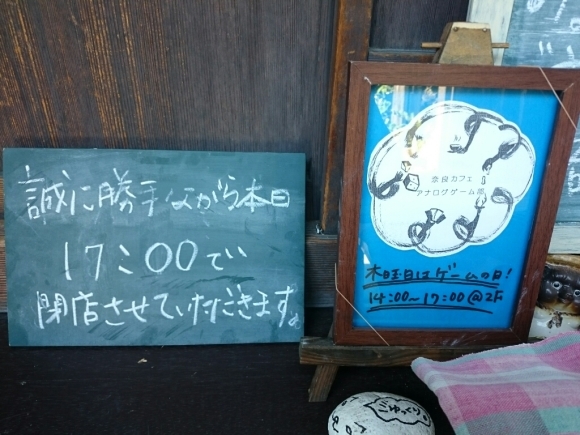 誠に勝手ながら本日
17:00で
閉店させていただきます。
奈良カフェ
アナログゲーム部
木曜日はゲームの日!
14:00～17:00@2F